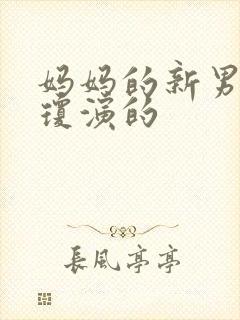 妈妈的新男
琼演的
長風亭亭